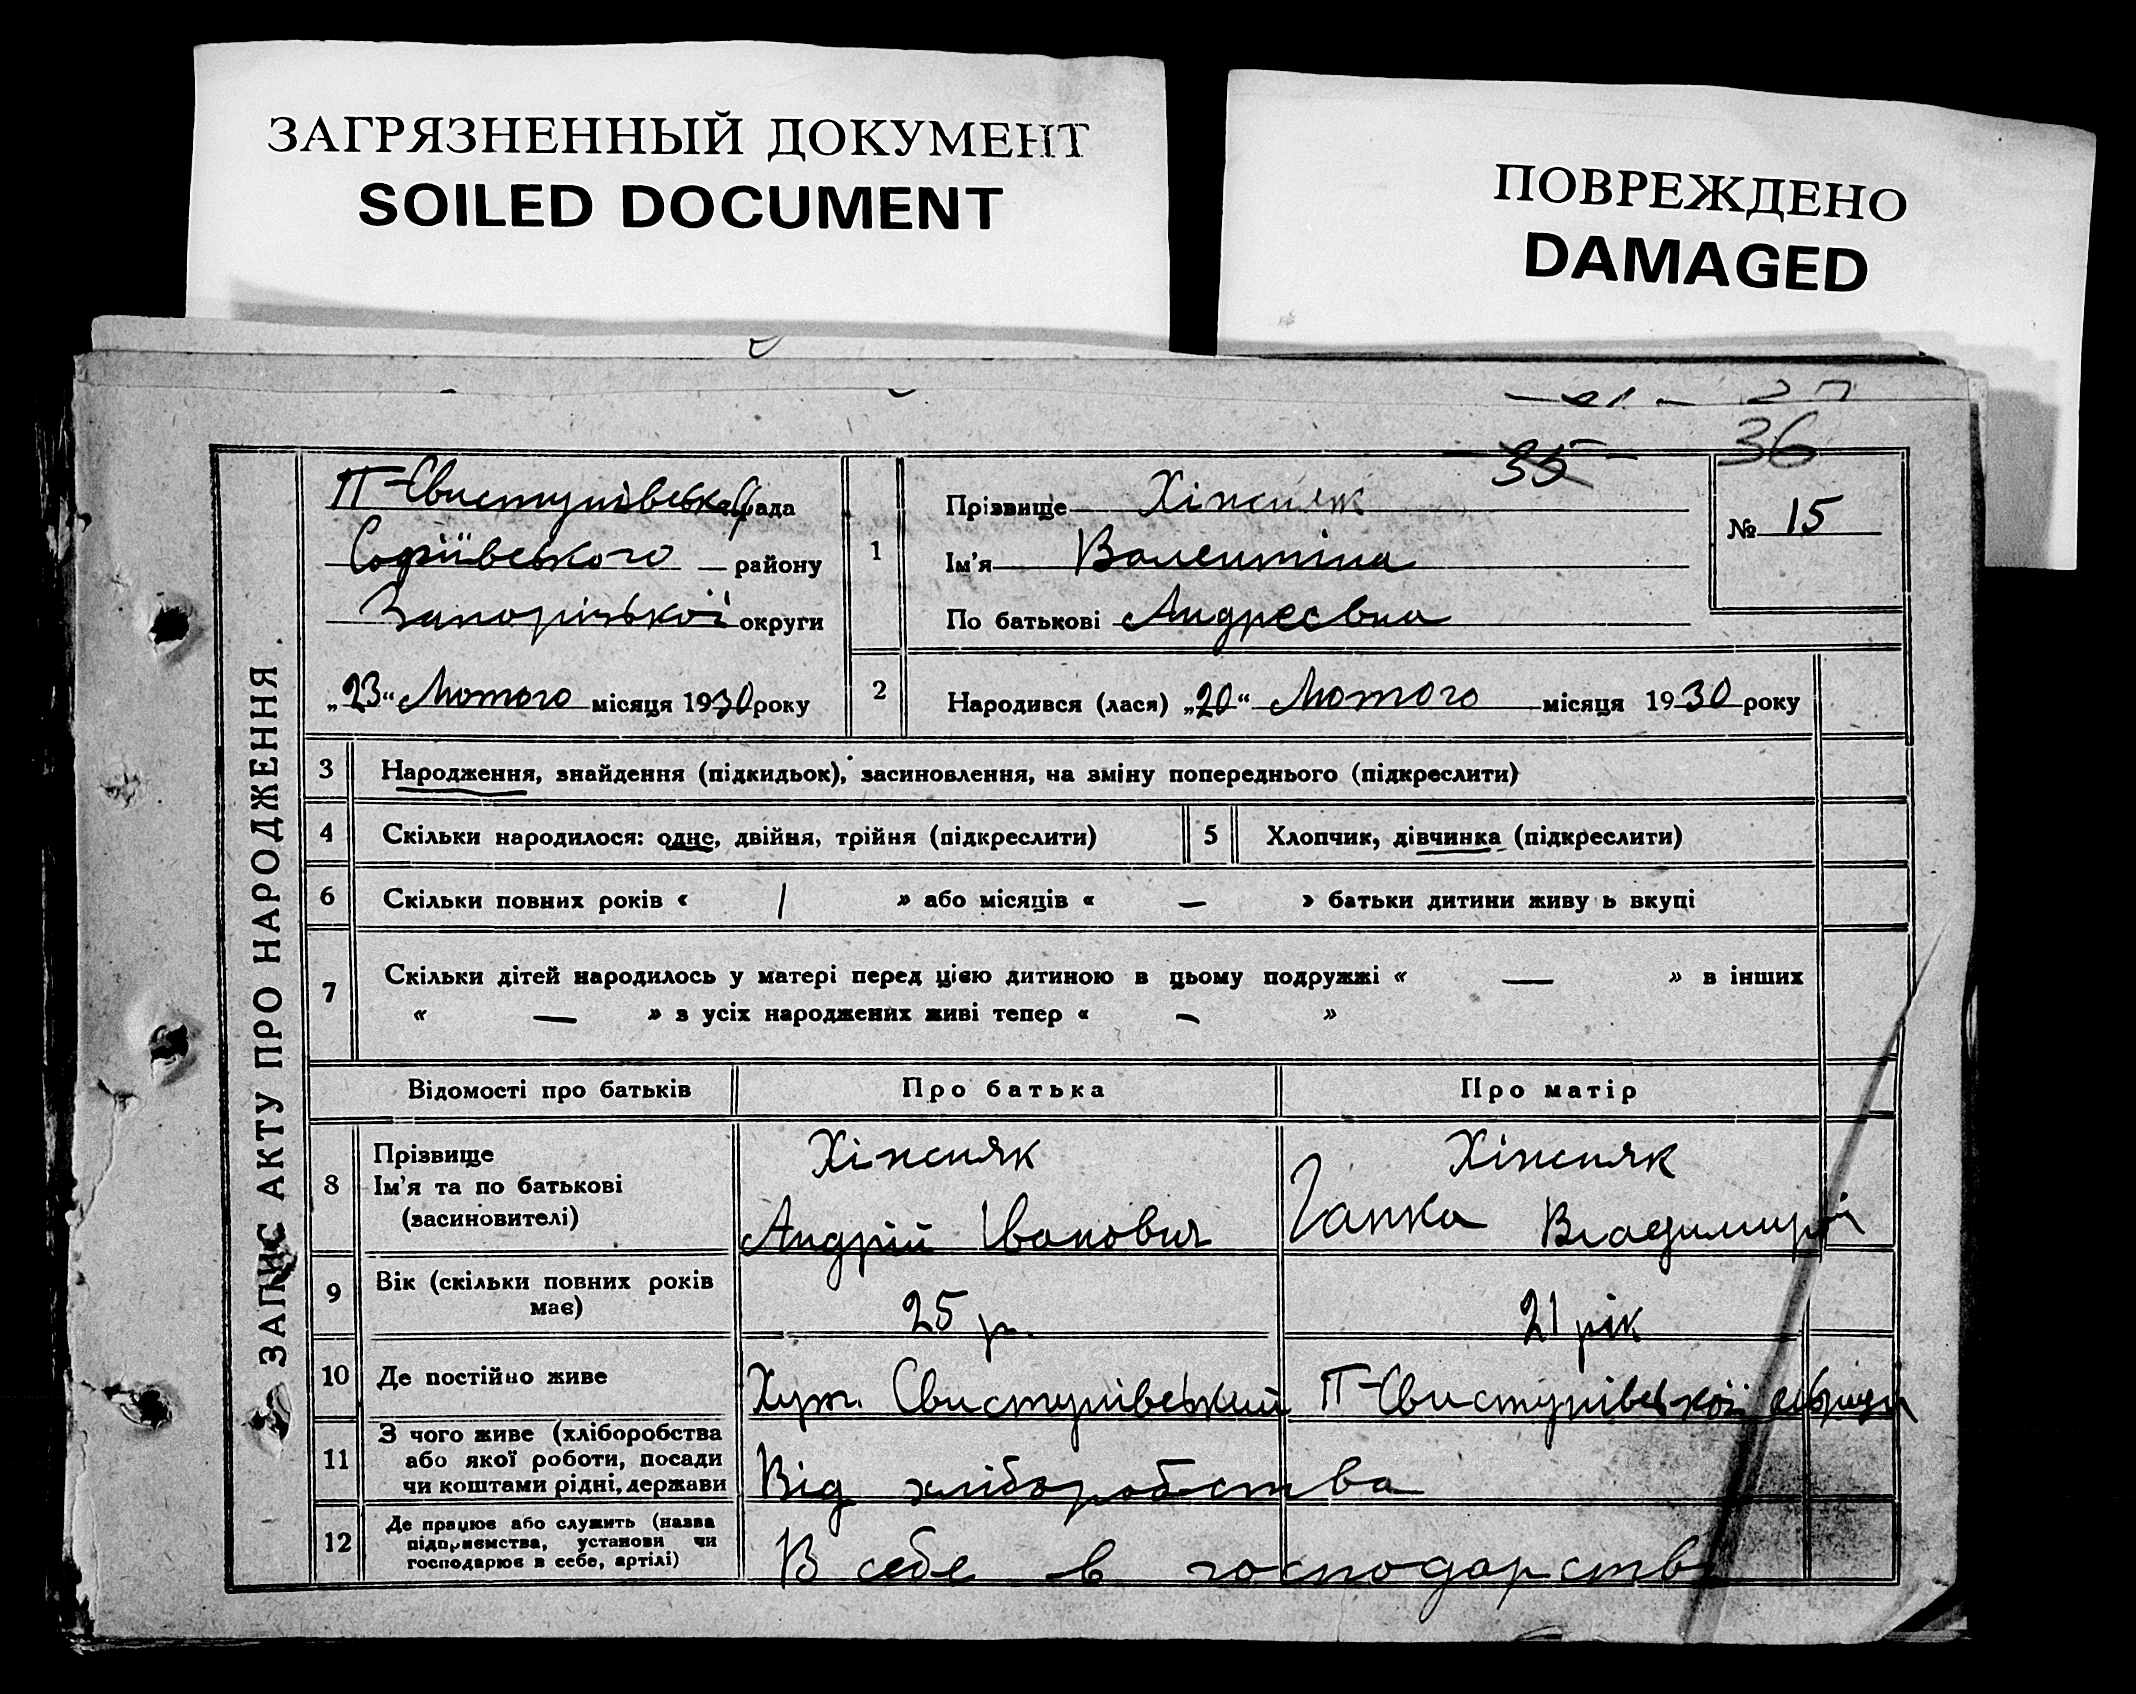 ЗАГРЯЗНЕННЫЙ ДОКУМЕНТ
SOILED DOCUMENT
ПОВРЕЖДЕНО
DAMAGED
35
36
ЗАПИС АКТУ ПРО НАРОДЖЕННЯ
П-Свистунівська рада
Софіївського району
Запорізької округи
„23“ Лютого місяця 1930 року
1
Прізвище Хіжняк
Ім'я Валентіна
По батькові Андреєвна
№ 15
2
Народився (лася) „20“ Лютого місяця 1930 року
3 Народження, знайдення (підкидьок), засиновлення, на зміну попереднього (підкреслити)
4 Скільки народилося: одне, двійня, трійня (підкреслити)
5 Хлопчик, дівчинка (підкреслити)
6 Скільки повних років « 1 » або місяців « — » батьки дитини живу ь вкупі
7 Скільки дітей народилось у матері перед цією дитиною в цьому подружжі « — » в інших
« — » з усіх народжених живі тепер « — »
Відомості про батьків Про батька Про матір
8 Прізвище
Ім'я та по батькові
(засиновителі)
Хіжняк
Андрій Іванович
Хіжняк
Гапка Владимирої
9 Вік (скільки повних років
має)
25 р.
21 рік
10 Де постійно живе
Хут. Свистунівський П-Свистунівської с/ради
11 З чого живе (хліборобства
або якої роботи, посади
чи коштами рідні, держави
Від хліборобства
12 Де працює або служить (назва
підприємства, установи чи
господарює в себе, артілі)
В себе в господарстві